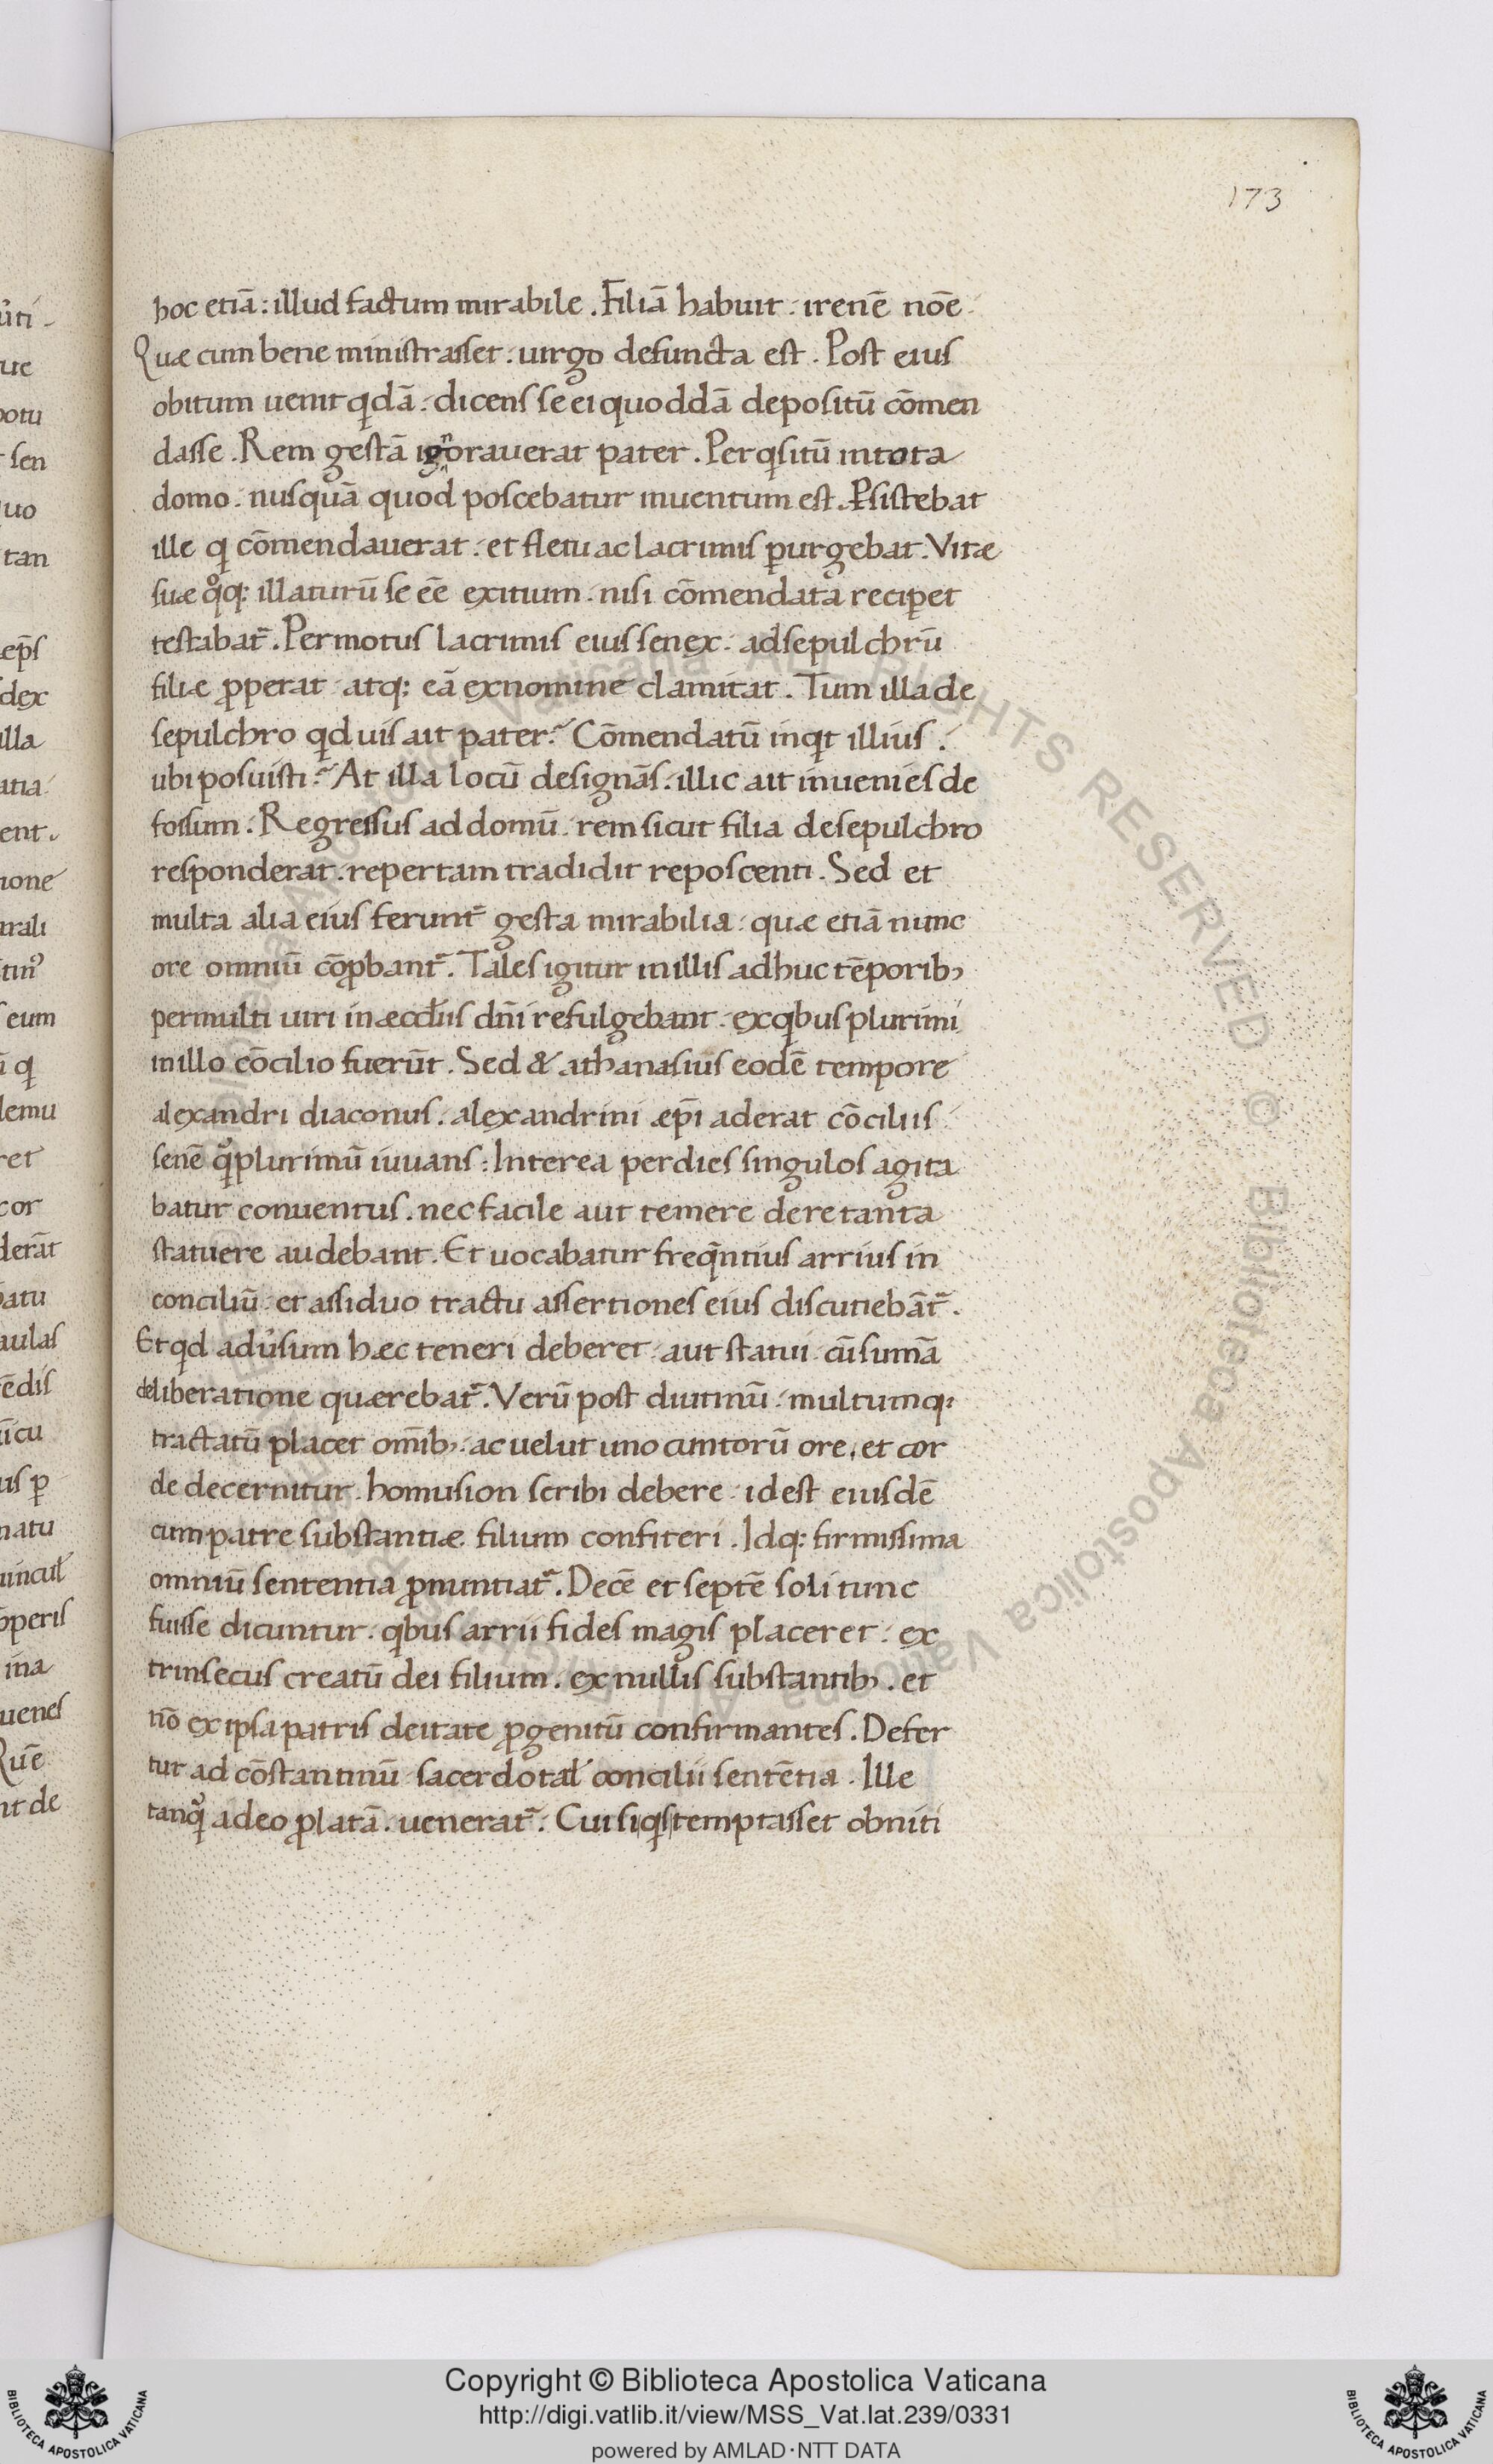 173
hoc etiā: illud factum mirabile. Filiā habuit. irenē nōe.
Quæ cum bene ministrasset. uirgo defuncta est. Post eius
obitum uenit qdā. dicens se ei quoddā depositū cōmen
dasse. Rem gestā ignorauerat pater. Perqsitū in tota
domo. nusquā quod poscebatur inuentum est. Psistebat
ille q cōmendauerat. et fletu ac lacrimis purgebat. Vitæ
suæ qoq: illaturū se eē exitium. nisi cōmendata reciperet
testabat̄. Permotus lacrimis eius senex. ad sepulchrū
filiæ properat. atq: eā ex nomine clamitat. Tum illa de
sepulchro qd uis ait pater? Cōmendatū inqt illius.
ubi posuisti? At illa locū designās. illic ait inuenies de
fossum. Regressus ad domū. rem sicut filia de sepulchro
responderat. repertam tradidit reposcenti. Sed et
multa alia eius ferunt̄ gesta mirabilia. quæ etiā nunc
ore omniū cōprobant̄. Tales igitur in illis adhuc tēporib;
permulti uiri in æccłiis dñi refulgebant. ex qbus plurimi
in illo cōcilio fuerūt. Sed & athanasius eodē tempore
alexandri diaconus. alexandrini æpi aderat cōciliis.
senē q plurimū iuuans: Interea per dies singulos agita
batur conuentus. nec facile aut temere de re tanta
statuere audebant. Et uocabatur freqntius arrius in
conciliū. et assiduo tractu assertiones eius discutiebāt̄.
Et qd aduʼsum hæc teneri deberet. aut statui. cū sumā
deliberatione quærebat̄. Verū post diutinū. multumq:
tractatū placet omīb;. ac uelut uno cuntorū ore, et cor
de decernitur. homusion scribi debere. idest eiusdē
cum patre substantiæ filium confiteri. Idq: firmissima
omniū sententia pronuntiat̄. Decē et septē soli tunc
fuisse dicuntur. qbus arrii fides magis placeret. ex
trinsecus creatū dei filium. ex nullis substantib;. et
nō ex ipsa patris deitate progenitū confirmantes. Defer
tur ad cōstantinū sacerdotał concilii sentētia. Ille
tanq a deo prolatā. uenerat̄. Cui si qs temptasset obniti
Copyright © Biblioteca Apostolica Vaticana
http://digi.vatlib.it/view/MSS_Vat.lat.239/0331
powered by AMLAD·NTT DATA
BIBLIOTECA APOSTOLICA VATICANA
BIBLIOTECA APOSTOLICA VATICANA